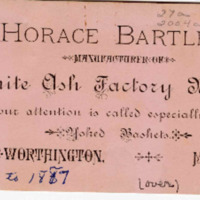 27a
HORACE BARTL
MANUFACTURER OF
ite Ash Factory
our attention is called especiall
Yoked Baskets.
WORTHINGTON. M
to 1887
(over)